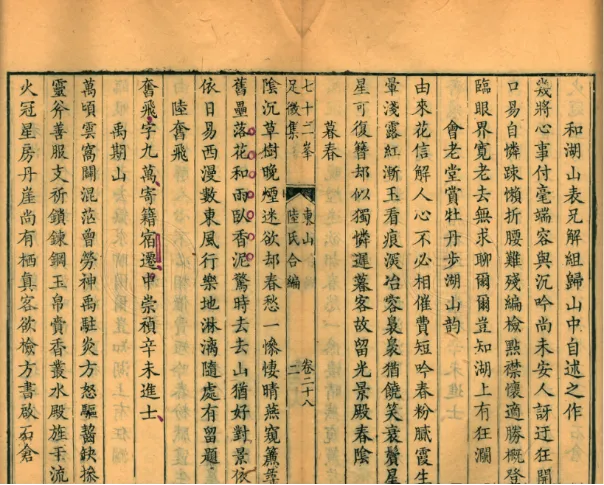 和湖山表兄解組歸山中自述之作
幾將心事付毫端容與沉吟尚未安人訝迂狂開
口易自憐疎懶折腰難殘編檢點襟懷適勝概登
臨眼界寬老去無求聊爾爾豈知湖上有狂瀾
會老堂賞牡丹步湖山韵
由來花信解人心不必相催費短吟春粉膩霞生
暈淺露紅漸玉看痕深冶容裊裊猶饒笑衰鬢星
星可復簪却似獨憐遲暮客故留光景殿春陰
暮春
七十二峯
足徵集
東山
陸氏合編
卷二十八
二
陰沉草樹晚煙迷欲却春愁一慘悽晴燕窺簾
舊壘落花和雨臥香泥驚時去去山猶好對景依
依日易西漫數東風行樂地淋漓隨處有留題
陸奮飛
奮飛字九萬寄籍宿遷中崇禎辛未進士
禹期山
萬頃雲窩闢混茫曾勞神禹駐炎方怒驅缺摻
靈斧善服支祈鎖鍊鋼玉帛賚香叢水殿旌干流
火冠星房丹崖尚有栖真客欲檢方書啟石倉